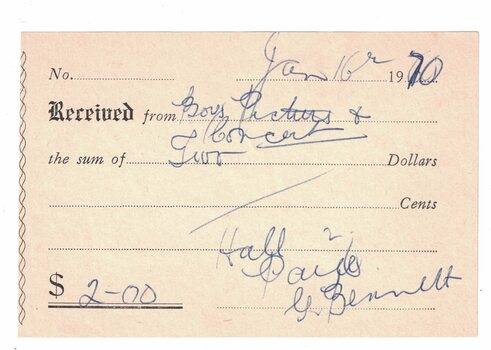 No. Jan 16th 1970
Received from Boys Pictures &
Concert
the sum of Two Dollars
Cents
Hall
Paid
$ 2-00 G. Bennett